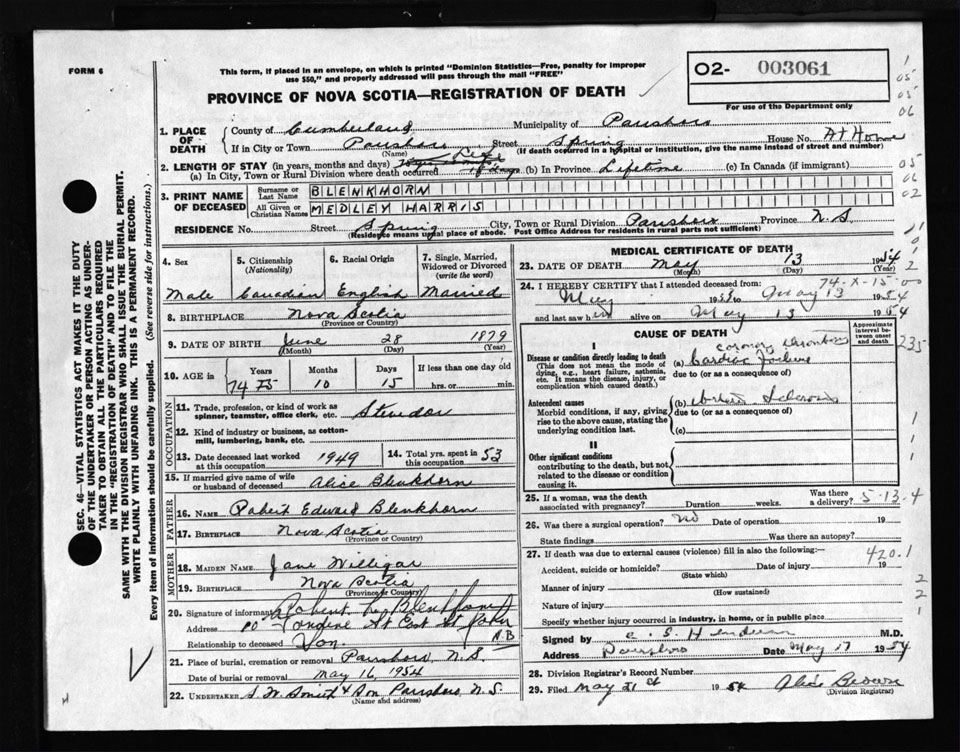 FORM 6
This form, if placed in an envelope, on which is printed "Dominion Statistics—Free, penalty for improper
use $50," and properly addressed will pass through the mail "FREE"
O2- 003061
For use of the Department only
PROVINCE OF NOVA SCOTIA—REGISTRATION OF DEATH
1. PLACE OF DEATH { County of Cumberland Municipality of Parrsboro
If in City or Town Parrsboro Street Spring House No. At Home
(Name) (If death occurred in a hospital or institution, give the name instead of street and number)
2. LENGTH OF STAY (in years, months and days)
(a) In City, Town or Rural Division where death occurred (b) In Province Lifetime (c) In Canada (if immigrant)
3. PRINT NAME OF DECEASED { Surname or Last Name BLENKHORN
All Given or Christian Names MEDLEY HARRIS
RESIDENCE No. Street Spring City, Town or Rural Division Parrsboro Province N.S.
(Residence means usual place of abode. Post Office Address for residents in rural parts not sufficient)
4. Sex 5. Citizenship (Nationality) 6. Racial Origin 7. Single, Married, Widowed or Divorced (write the word)
Male Canadian English Married
8. BIRTHPLACE Nova Scotia
(Province or Country)
9. DATE OF BIRTH June 28 1879
(Month) (Day) (Year)
10. AGE in { Years Months Days If less than one day old
74 75 10 15 hrs. or min.
OCCUPATION
11. Trade, profession, or kind of work as spinner, teamster, office clerk, etc.
12. Kind of industry or business, as cotton-mill, lumbering, bank, etc.
13. Date deceased last worked at this occupation 1949 14. Total yrs. spent in this occupation 53
15. If married give name of wife or husband of deceased Alice Blenkhorn
FATHER
16. NAME Robert Edward Blenkhorn
17. BIRTHPLACE Nova Scotia
(Province or Country)
MOTHER
18. MAIDEN NAME Jane Willigar
19. BIRTHPLACE Nova Scotia
(Province or Country)
20. Signature of informant Robert Blenkhorn
Address St John N.B
Relationship to deceased Son
21. Place of burial, cremation or removal Parrsboro, N.S.
Date of burial or removal May 16, 1954
22. UNDERTAKER Smith & Son Parrsboro, N.S.
(Name and address)
MEDICAL CERTIFICATE OF DEATH
23. DATE OF DEATH May 13 1954
(Month) (Day) (Year)
74-X-15-00
24. I HEREBY CERTIFY that I attended deceased from:
May 1954 to May 13 1954
and last saw him alive on May 13 1954
CAUSE OF DEATH
Approximate interval between onset and death
I
coronary thrombosis
Disease or condition directly leading to death (a) Cardiac Failure
(This does not mean the mode of dying, e.g., heart failure, asthenia, etc. It means the disease, injury, or complication which caused death.)
due to (or as a consequence of)
Antecedent causes (b) Sclerosis
Morbid conditions, if any, giving rise to the above cause, stating the underlying condition last.
due to (or as a consequence of)
(c)
II
Other significant conditions
contributing to the death, but not related to the disease or condition causing it.
25. If a woman, was the death associated with pregnancy? Duration weeks. Was there a delivery? 5-13-4
26. Was there a surgical operation? No Date of operation 19
State findings Was there an autopsy?
27. If death was due to external causes (violence) fill in also the following:— 420.1
Accident, suicide or homicide? Date of injury 19
(State which)
Manner of injury
(How sustained)
Nature of injury
Specify whether injury occurred in industry, in home, or in public place
Signed by M.D.
Address Parrsboro Date May 17 1954
28. Division Registrar's Record Number
29. Filed May 31st 1954 Alice Brown
(Division Registrar)
SEC. 46—VITAL STATISTICS ACT MAKES IT THE DUTY
OF THE UNDERTAKER OR PERSON ACTING AS UNDER-
TAKER TO OBTAIN ALL THE PARTICULARS REQUIRED
IN THE "REGISTRATION OF DEATH" AND TO FILE THE
SAME WITH THE DIVISION REGISTRAR WHO SHALL ISSUE THE BURIAL PERMIT.
WRITE PLAINLY WITH UNFADING INK. THIS IS A PERMANENT RECORD.
Every item of information should be carefully supplied. (See reverse side for instructions.)
1
05
05
06
05
06
02
235